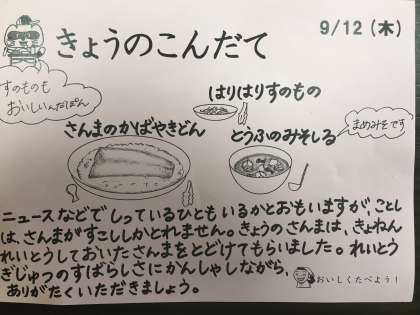 9/12(木)
きょうのこんだて
すのものも
おいしいんだぽん
はりはりすのもの
さんまのかばやきどん
とうふのみそしる
まめみそです
ニュースなどでしっているひともいるかとおもいますが、ことし
は、さんまがすこししかとれません。きょうのさんまは、きょねん
れいとうしておいたさんまをとどけてもらいました。れいとう
ぎじゅつのすばらしさにかんしゃしながら、
ありがたくいただきましょう。
おいしくたべよう!